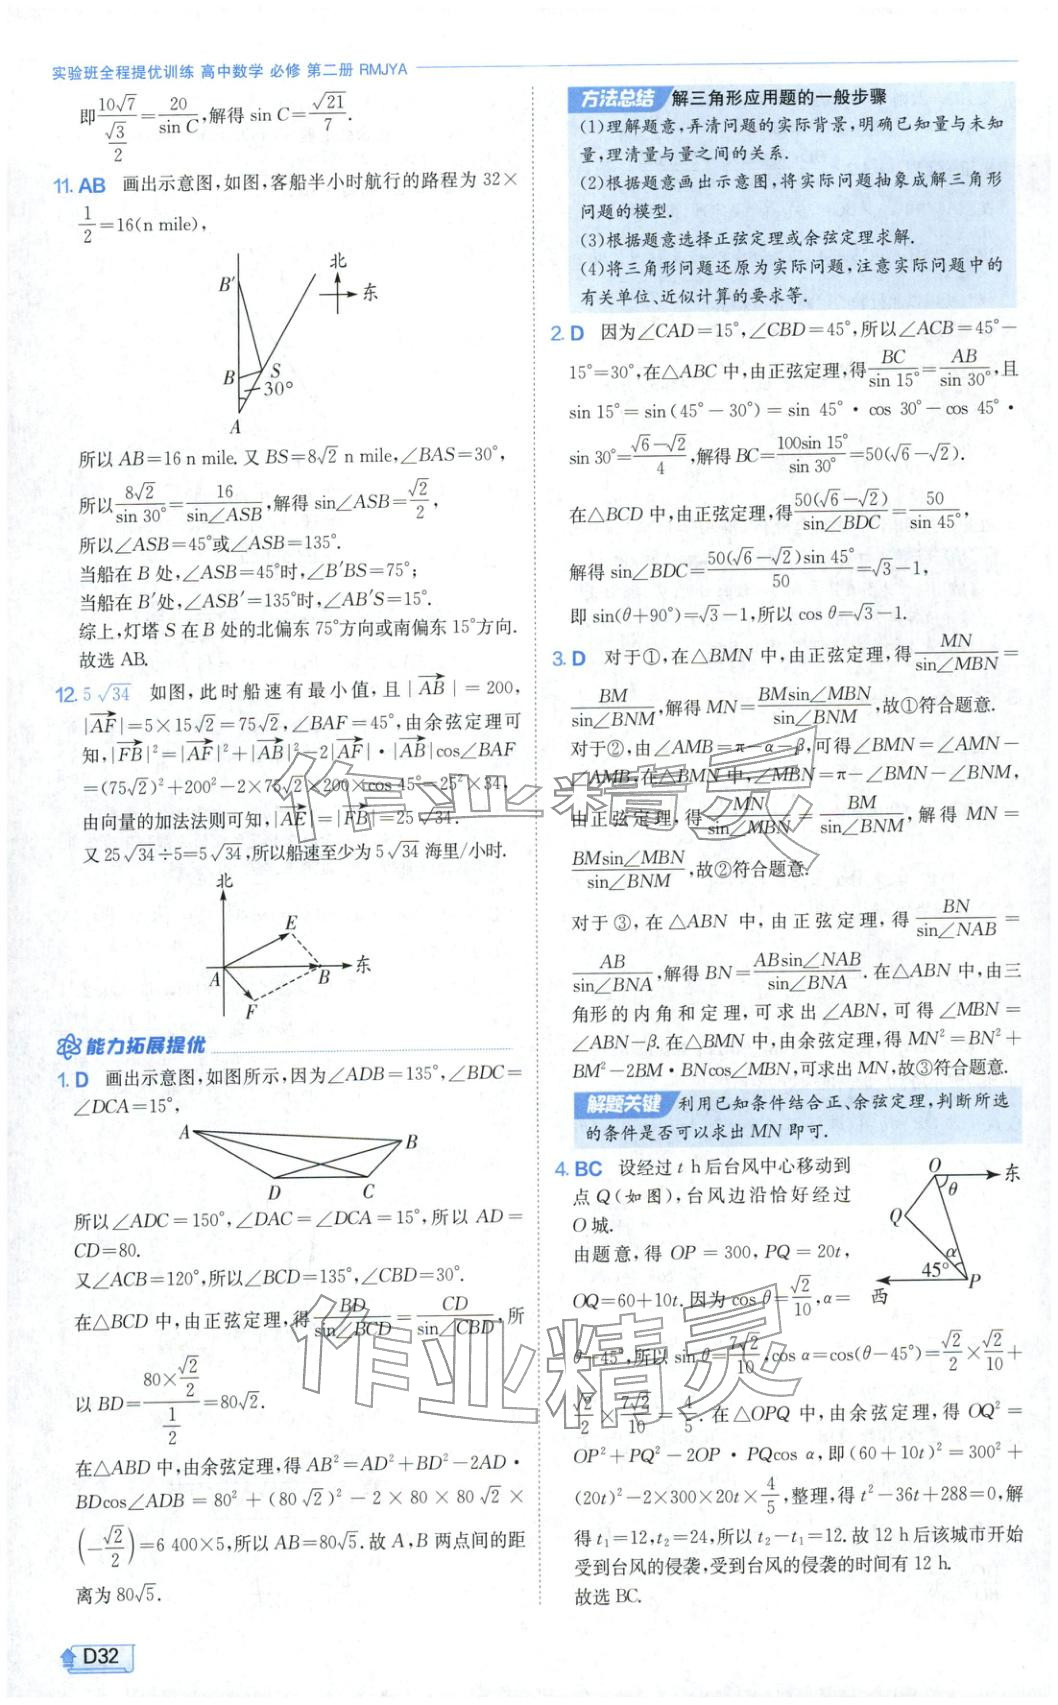 实验班全程提优训练 高中数学 必修 第二册 RMJYA
即10√7/(√3/2)=20/sin C,解得 sin C=√21/7.
11. AB 画出示意图,如图,客船半小时航行的路程为 32×
1/2=16(n mile),
北
东
B′
B
S
30°
A
所以 AB=16 n mile. 又 BS=8√2 n mile,∠BAS=30°,
所以8√2/sin 30°=16/sin∠ASB,解得 sin∠ASB=√2/2,
所以∠ASB=45°或∠ASB=135°.
当船在 B 处,∠ASB=45°时,∠B′BS=75°;
当船在 B′处,∠ASB′=135°时,∠AB′S=15°.
综上,灯塔 S 在 B 处的北偏东 75°方向或南偏东 15°方向.
故选 AB.
12. 5√34 如图,此时船速有最小值,且|AB→|=200,
|AF→|=5×15√2=75√2,∠BAF=45°,由余弦定理可
知,|FB→|²=|AF→|²+|AB→|²-2|AF→|·|AB→|cos∠BAF
=(75√2)²+200²-2×75√2×200×cos 45°=25²×34,
由向量的加法法则可知,|AE→|=|FB→|=25√34.
又 25√34÷5=5√34,所以船速至少为 5√34 海里/小时.
北
E
东
A
B
F
能力拓展提优
1. D 画出示意图,如图所示,因为∠ADB=135°,∠BDC=
∠DCA=15°,
A
B
D
C
所以∠ADC=150°,∠DAC=∠DCA=15°,所以 AD=
CD=80.
又∠ACB=120°,所以∠BCD=135°,∠CBD=30°.
在△BCD 中,由正弦定理,得BD/sin∠BCD=CD/sin∠CBD,所
以 BD=(80×√2/2)/(1/2)=80√2.
在△ABD 中,由余弦定理,得 AB²=AD²+BD²-2AD·
BDcos∠ADB=80²+(80√2)²-2×80×80√2×
(-√2/2)=6 400×5,所以 AB=80√5. 故 A,B 两点间的距
离为 80√5.
D32
方法总结 解三角形应用题的一般步骤
(1)理解题意,弄清问题的实际背景,明确已知量与未知
量,理清量与量之间的关系.
(2)根据题意画出示意图,将实际问题抽象成解三角形
问题的模型.
(3)根据题意选择正弦定理或余弦定理求解.
(4)将三角形问题还原为实际问题,注意实际问题中的
有关单位、近似计算的要求等.
2. D 因为∠CAD=15°,∠CBD=45°,所以∠ACB=45°-
15°=30°,在△ABC 中,由正弦定理,得BC/sin 15°=AB/sin 30°,且
sin 15°=sin(45°-30°)=sin 45°·cos 30°-cos 45°·
sin 30°=(√6-√2)/4,解得 BC=100sin 15°/sin 30°=50(√6-√2).
在△BCD 中,由正弦定理,得50(√6-√2)/sin∠BDC=50/sin 45°,
解得 sin∠BDC=50(√6-√2)sin 45°/50=√3-1,
即 sin(θ+90°)=√3-1,所以 cos θ=√3-1.
3. D 对于①,在△BMN 中,由正弦定理,得MN/sin∠MBN=
BM/sin∠BNM,解得 MN=BMsin∠MBN/sin∠BNM,故①符合题意.
对于②,由∠AMB=π-α-β,可得∠BMN=∠AMN-
∠AMB,在△BMN 中,∠MBN=π-∠BMN-∠BNM,
由正弦定理,得MN/sin∠MBN=BM/sin∠BNM,解得 MN=
BMsin∠MBN/sin∠BNM,故②符合题意.
对于③,在△ABN 中,由正弦定理,得BN/sin∠NAB=
AB/sin∠BNA,解得 BN=ABsin∠NAB/sin∠BNA. 在△ABN 中,由三
角形的内角和定理,可求出∠ABN,可得∠MBN=
∠ABN-β. 在△BMN 中,由余弦定理,得 MN²=BN²+
BM²-2BM·BNcos∠MBN,可求出 MN,故③符合题意.
解题关键 利用已知条件结合正、余弦定理,判断所选
的条件是否可以求出 MN 即可.
4. BC 设经过 t h 后台风中心移动到
点 Q(如图),台风边沿恰好经过
O 城.
由题意,得 OP=300,PQ=20t,
OQ=60+10t. 因为 cos θ=√2/10,α=
θ-45°,所以 sin θ=7√2/10,cos α=cos(θ-45°)=√2/2×√2/10+
√2/2×7√2/10=4/5. 在△OPQ 中,由余弦定理,得 OQ²=
OP²+PQ²-2OP·PQcos α,即(60+10t)²=300²+
(20t)²-2×300×20t×4/5,整理,得 t²-36t+288=0,解
得 t₁=12,t₂=24,所以 t₂-t₁=12. 故 12 h 后该城市开始
受到台风的侵袭,受到台风的侵袭的时间有 12 h.
故选 BC.
O
东
θ
Q
α
45°
P
西
作业精灵
作业精灵